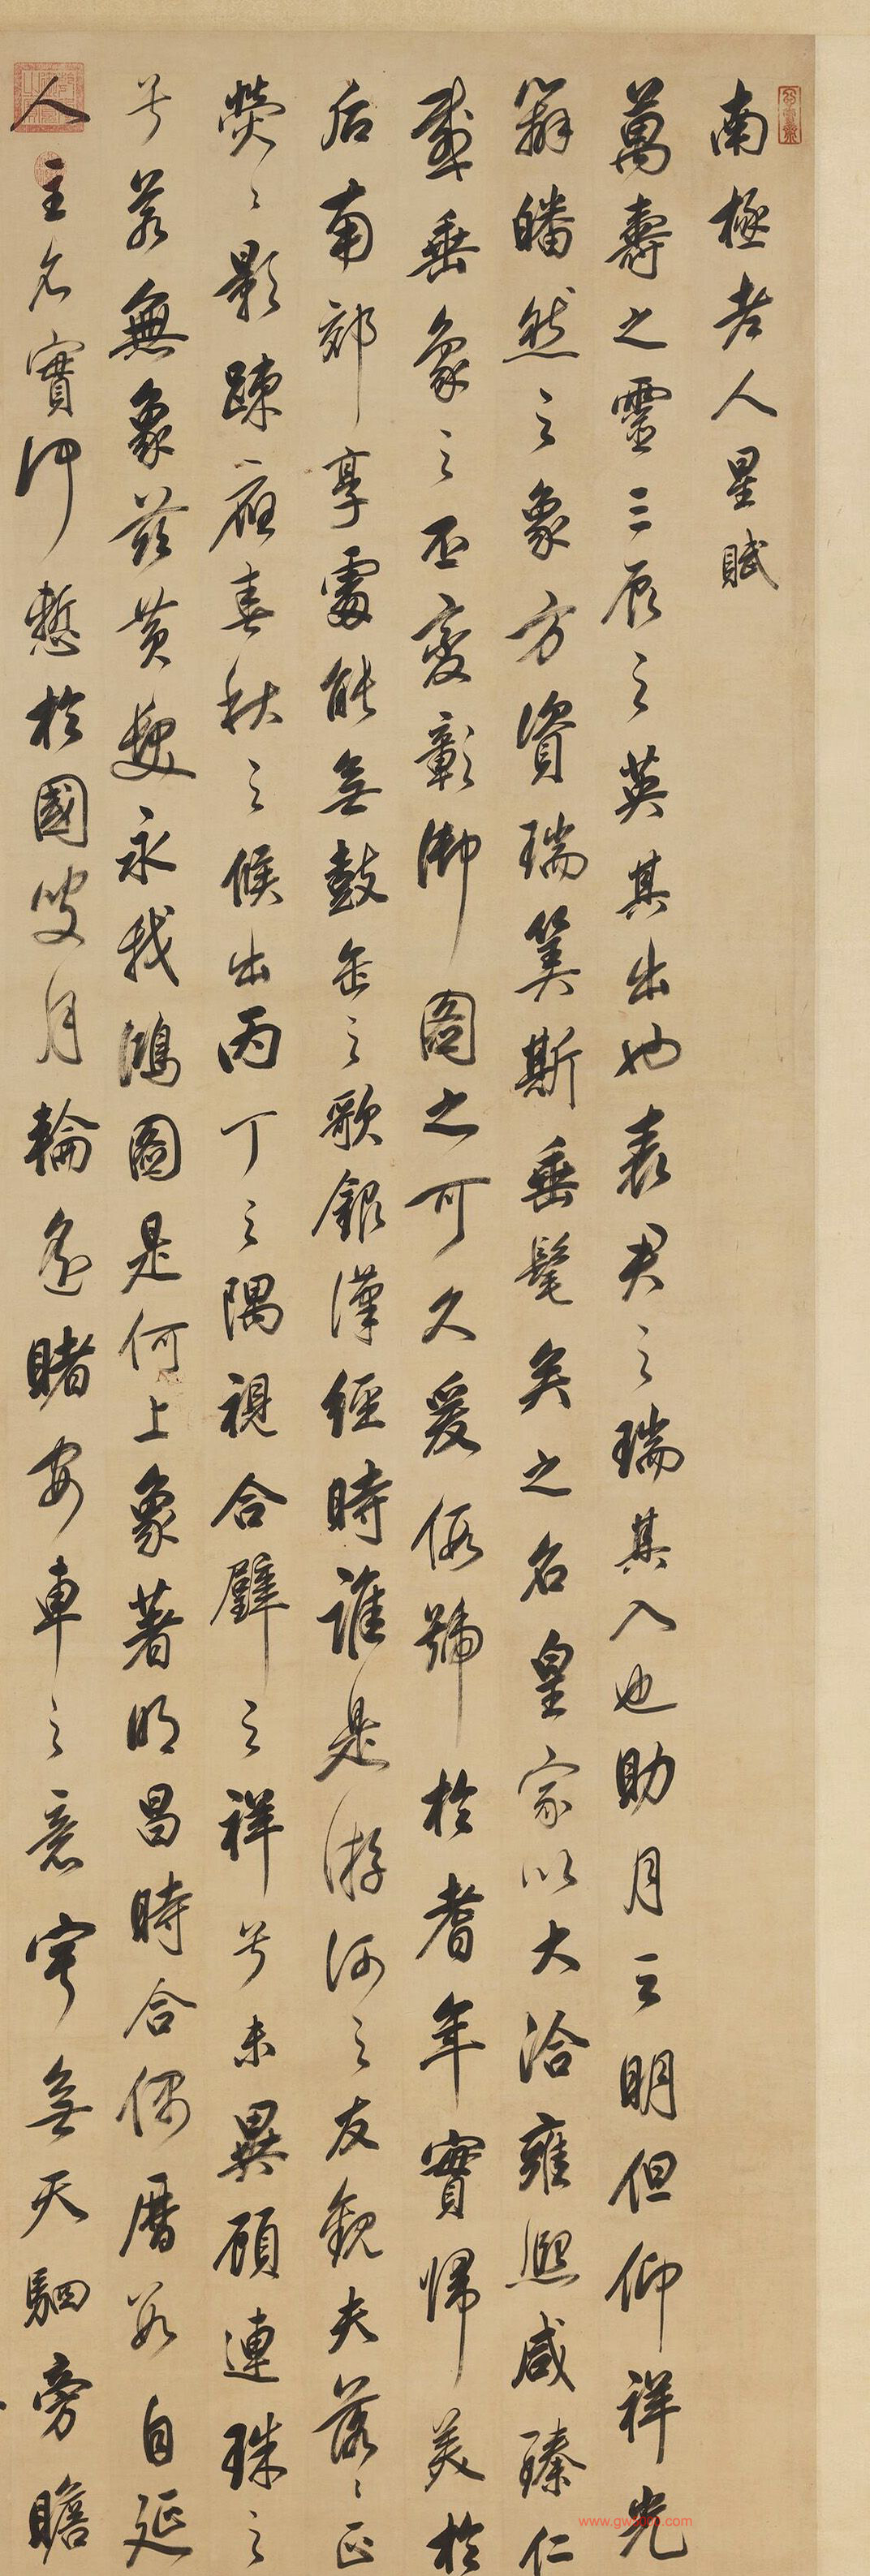 南極老人星賦
萬壽之靈三辰之英其出也表君之瑞其入也助月之明但仰祥光
辭皤然之象方資瑞筭斯垂髦矣之名皇家以大洽雍熙咸臻仁
壽垂象之丕變彰御圖之可久爰假號於耆年實歸美於
后南郊享處能無鼓缶之歌銀漢經時誰是游河之友觀夫落落正
熒熒影疎應春秋之候出丙丁之隅視合璧之祥兮未異顧連珠之
兮若無象茲黃髮永我鴻圖是何上象著明昌時合偶曆數自延
人主名實何慙於國叟月輪遙睹安車之意寧無天駟旁瞻
www.gw1000.com